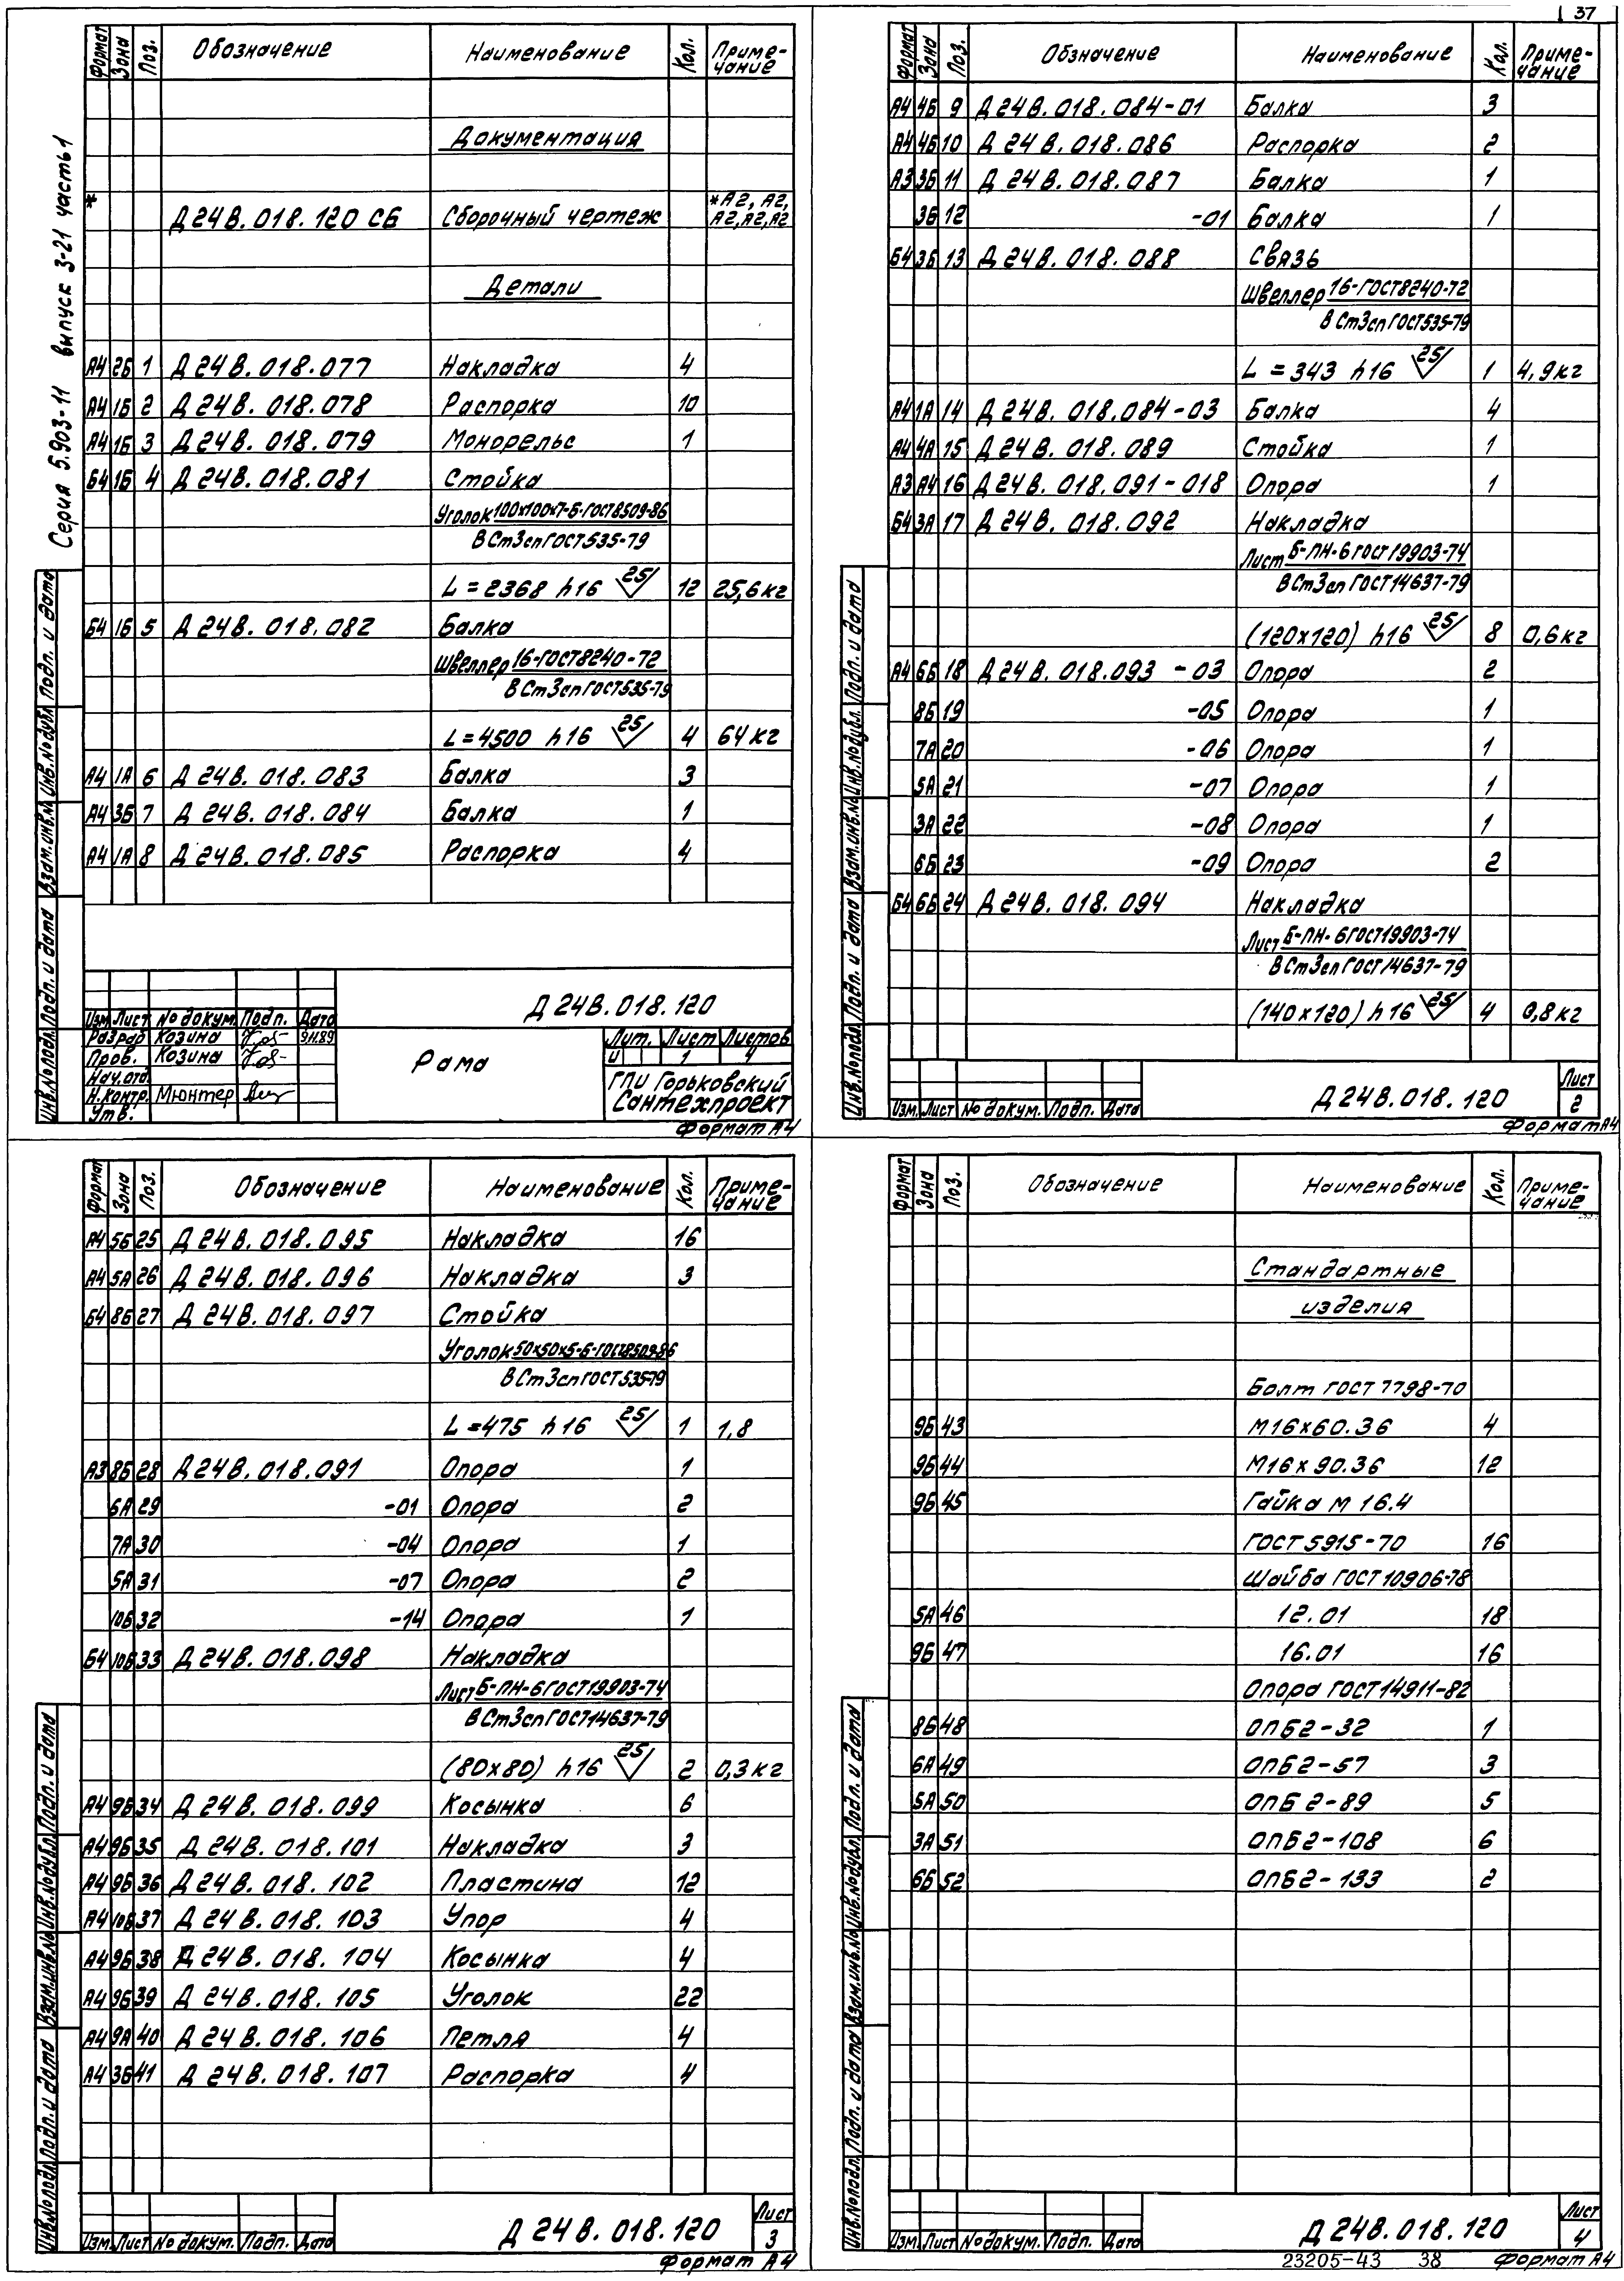 37
Серия 5.903-11 выпуск 3-21 часть 1
Формат Зона Поз. Обозначение Наименование Кол. Приме-
чание
Документация
* Д24В.018.120 СБ Сборочный чертеж *А2, А2,
А2,А2,А2
Детали
А4 2Б 1 Д24В.018.077 Накладка 4
А4 1Б 2 Д24В.018.078 Распорка 10
А4 1Б 3 Д24В.018.079 Монорельс 1
Б4 1Б 4 Д24В.018.081 Стойка
Уголок 100х100х7-Б-ГОСТ8509-86
ВСт3сп ГОСТ535-79
L=2368 h16 25/ 12 25,6кг
Б4 1Б 5 Д24В.018.082 Балка
Швеллер 16-ГОСТ8240-72
ВСт3сп ГОСТ535-79
L=4500 h16 25/ 4 64кг
А4 1А 6 Д24В.018.083 Балка 3
А4 3Б 7 Д24В.018.084 Балка 1
А4 1А 8 Д24В.018.085 Распорка 4
Д24В.018.120
Изм. Лист № докум. Подп. Дата
Разраб. Козина 9.11.89
Пров. Козина
Нач.отд.
Н.контр. Мюнтер
Утв.
Рама
Лит. Лист Листов
И 1 4
ГПИ Горьковский
Сантехпроект
Формат А4
Инв.№подл. Подп. и дата Взам.инв.№ Инв.№дубл. Подп. и дата
Формат Зона Поз. Обозначение Наименование Кол. Приме-
чание
А4 4Б 9 Д24В.018.084-01 Балка 3
А4 4Б 10 Д24В.018.086 Распорка 2
А3 3Б 11 Д24В.018.087 Балка 1
3Б 12 -01 Балка 1
Б4 3Б 13 Д24В.018.088 Связь
Швеллер 16-ГОСТ8240-72
ВСт3сп ГОСТ535-79
L=343 h16 25/ 1 4,9кг
А4 1А 14 Д24В.018.084-03 Балка 4
А4 4А 15 Д24В.018.089 Стойка 1
А3 А4 16 Д24В.018.091-018 Опора 1
Б4 3А 17 Д24В.018.092 Накладка
Лист Б-ПН-6 ГОСТ19903-74
ВСт3сп ГОСТ14637-79
(120х120) h16 25/ 8 0,6кг
А4 6Б 18 Д24В.018.093 -03 Опора 2
8Б 19 -05 Опора 1
7А 20 -06 Опора 1
5А 21 -07 Опора 1
3А 22 -08 Опора 1
6Б 23 -09 Опора 2
Б4 6Б 24 Д24В.018.094 Накладка
Лист Б-ПН-6 ГОСТ19903-74
ВСт3сп ГОСТ14637-79
(140х120) h16 25/ 4 0,8кг
Изм. Лист № докум. Подп. Дата
Д24В.018.120
Лист
2
Формат А4
Инв.№подл. Подп. и дата Взам.инв.№ Инв.№дубл. Подп. и дата
Формат Зона Поз. Обозначение Наименование Кол. Приме-
чание
А4 5Б 25 Д24В.018.095 Накладка 16
А4 5А 26 Д24В.018.096 Накладка 3
Б4 8Б 27 Д24В.018.097 Стойка
Уголок 50х50х5-Б-ГОСТ8509-86
ВСт3сп ГОСТ535-79
L=475 h16 25/ 1 1,8
А3 8Б 28 Д24В.018.091 Опора 1
6А 29 -01 Опора 2
7А 30 -04 Опора 1
5А 31 -07 Опора 2
10Б 32 -14 Опора 1
Б4 10Б 33 Д24В.018.098 Накладка
Лист Б-ПН-6 ГОСТ19903-74
ВСт3сп ГОСТ14637-79
(80х80) h16 25/ 2 0,3кг
А4 9Б 34 Д24В.018.099 Косынка 6
А4 9Б 35 Д24В.018.101 Накладка 3
А4 9Б 36 Д24В.018.102 Пластина 12
А4 10Б 37 Д24В.018.103 Упор 4
А4 9Б 38 Д24В.018.104 Косынка 4
А4 9Б 39 Д24В.018.105 Уголок 22
А4 9А 40 Д24В.018.106 Петля 4
А4 3Б 41 Д24В.018.107 Распорка 4
Изм. Лист № докум. Подп. Дата
Д24В.018.120
Лист
3
Формат А4
Инв.№подл. Подп. и дата Взам.инв.№ Инв.№дубл. Подп. и дата
Формат Зона Поз. Обозначение Наименование Кол. Приме-
чание
Стандартные
изделия
Болт ГОСТ 7798-70
9Б 43 М16х60.36 4
9Б 44 М16х90.36 12
9Б 45 Гайка М16.4
ГОСТ 5915-70 16
Шайба ГОСТ 10906-78
5А 46 12.01 18
9Б 47 16.01 16
Опора ГОСТ 14911-82
8Б 48 ОПБ2-32 1
6А 49 ОПБ2-57 3
5А 50 ОПБ2-89 5
3А 51 ОПБ2-108 6
6Б 52 ОПБ2-133 2
Изм. Лист № докум. Подп. Дата
Д24В.018.120
Лист
4
23205-43 38 Формат А4
Инв.№подл. Подп. и дата Взам.инв.№ Инв.№дубл. Подп. и дата